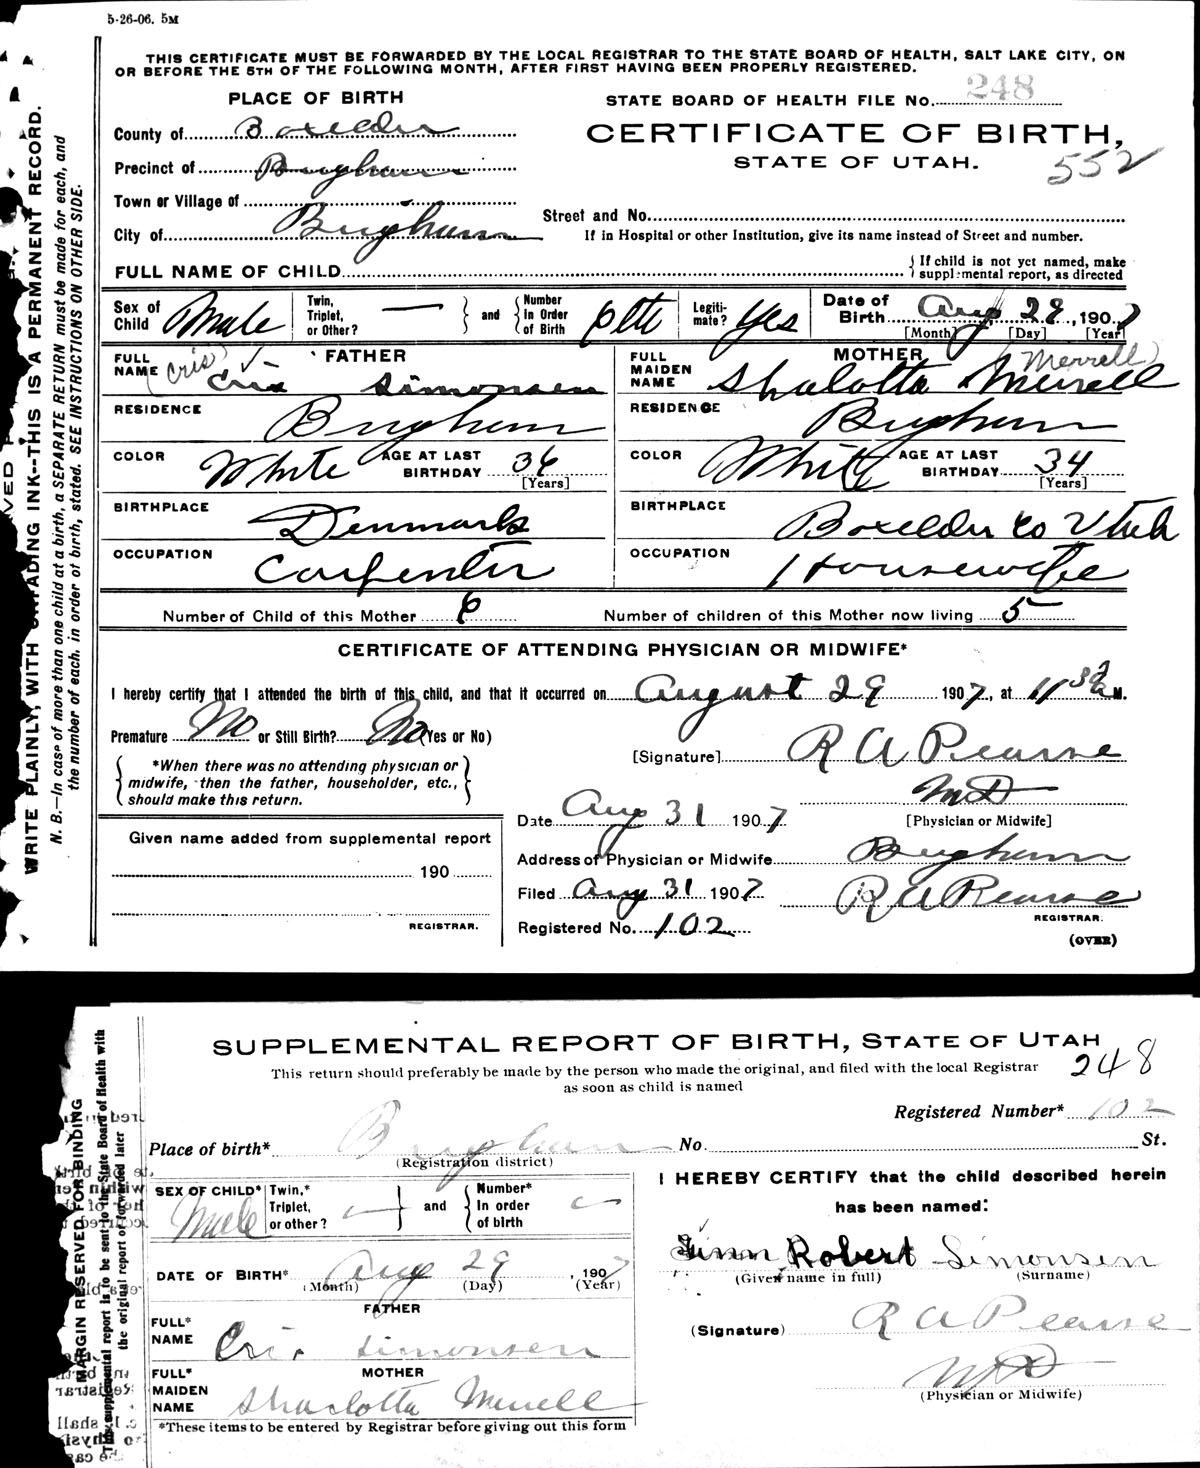 5-26-06. 5M
THIS CERTIFICATE MUST BE FORWARDED BY THE LOCAL REGISTRAR TO THE STATE BOARD OF HEALTH, SALT LAKE CITY, ON
OR BEFORE THE 5TH OF THE FOLLOWING MONTH, AFTER FIRST HAVING BEEN PROPERLY REGISTERED.
PLACE OF BIRTH
STATE BOARD OF HEALTH FILE No. 248
County of Boxelder
CERTIFICATE OF BIRTH,
STATE OF UTAH.
552
Precinct of Brigham
Town or Village of
Street and No.
City of Brigham
If in Hospital or other Institution, give its name instead of Street and number.
FULL NAME OF CHILD
If child is not yet named, make
supplemental report, as directed
Sex of Child Male
Twin, Triplet, or Other? — and Number In Order of Birth 6th
Legitimate? Yes
Date of Birth Aug 29, 1907
[Month] [Day] [Year]
FATHER
FULL NAME (Cris) Cris Simonsen
MOTHER
FULL MAIDEN NAME Sharlotta Merrell (Merrell)
RESIDENCE Brigham
RESIDENCE Brigham
COLOR White AGE AT LAST BIRTHDAY 36 [Years]
COLOR White AGE AT LAST BIRTHDAY 34 [Years]
BIRTHPLACE Denmark
BIRTHPLACE Boxelder Co Utah
OCCUPATION Carpenter
OCCUPATION Housewife
Number of Child of this Mother 6
Number of children of this Mother now living 5
CERTIFICATE OF ATTENDING PHYSICIAN OR MIDWIFE*
I hereby certify that I attended the birth of this child, and that it occurred on August 29 1907, at 11 30 a M.
Premature No or Still Birth? No (Yes or No)
[Signature] R A Pearse
MD
[Physician or Midwife]
*When there was no attending physician or
midwife, then the father, householder, etc.,
should make this return.
Date Aug 31 1907
Given name added from supplemental report
190
REGISTRAR.
Address of Physician or Midwife Brigham
Filed Aug 31 1907 R A Pearse
REGISTRAR.
Registered No. 102
(OVER)
WRITE PLAINLY, WITH UNFADING INK--THIS IS A PERMANENT RECORD.
N. B.—In case of more than one child at a birth, a SEPARATE RETURN must be made for each, and
the number of each, in order of birth, stated. SEE INSTRUCTIONS ON OTHER SIDE.
SUPPLEMENTAL REPORT OF BIRTH, STATE OF UTAH
248
This return should preferably be made by the person who made the original, and filed with the local Registrar
as soon as child is named
Registered Number* 102
Place of birth* Brigham No. St.
(Registration district)
SEX OF CHILD* Male
Twin,* Triplet, or other? — and Number* In order of birth —
I HEREBY CERTIFY that the child described herein
has been named:
Finn Robert Simonsen
(Given name in full) (Surname)
DATE OF BIRTH* Aug 29, 1907
(Month) (Day) (Year)
FATHER
FULL* NAME Cris Simonsen
(Signature) R A Pearse
MD
(Physician or Midwife)
MOTHER
FULL* MAIDEN NAME Sharlotta Merrell
*These items to be entered by Registrar before giving out this form
MARGIN RESERVED FOR BINDING
This supplemental report is to be sent to the State Board of Health with
the original report or forwarded later